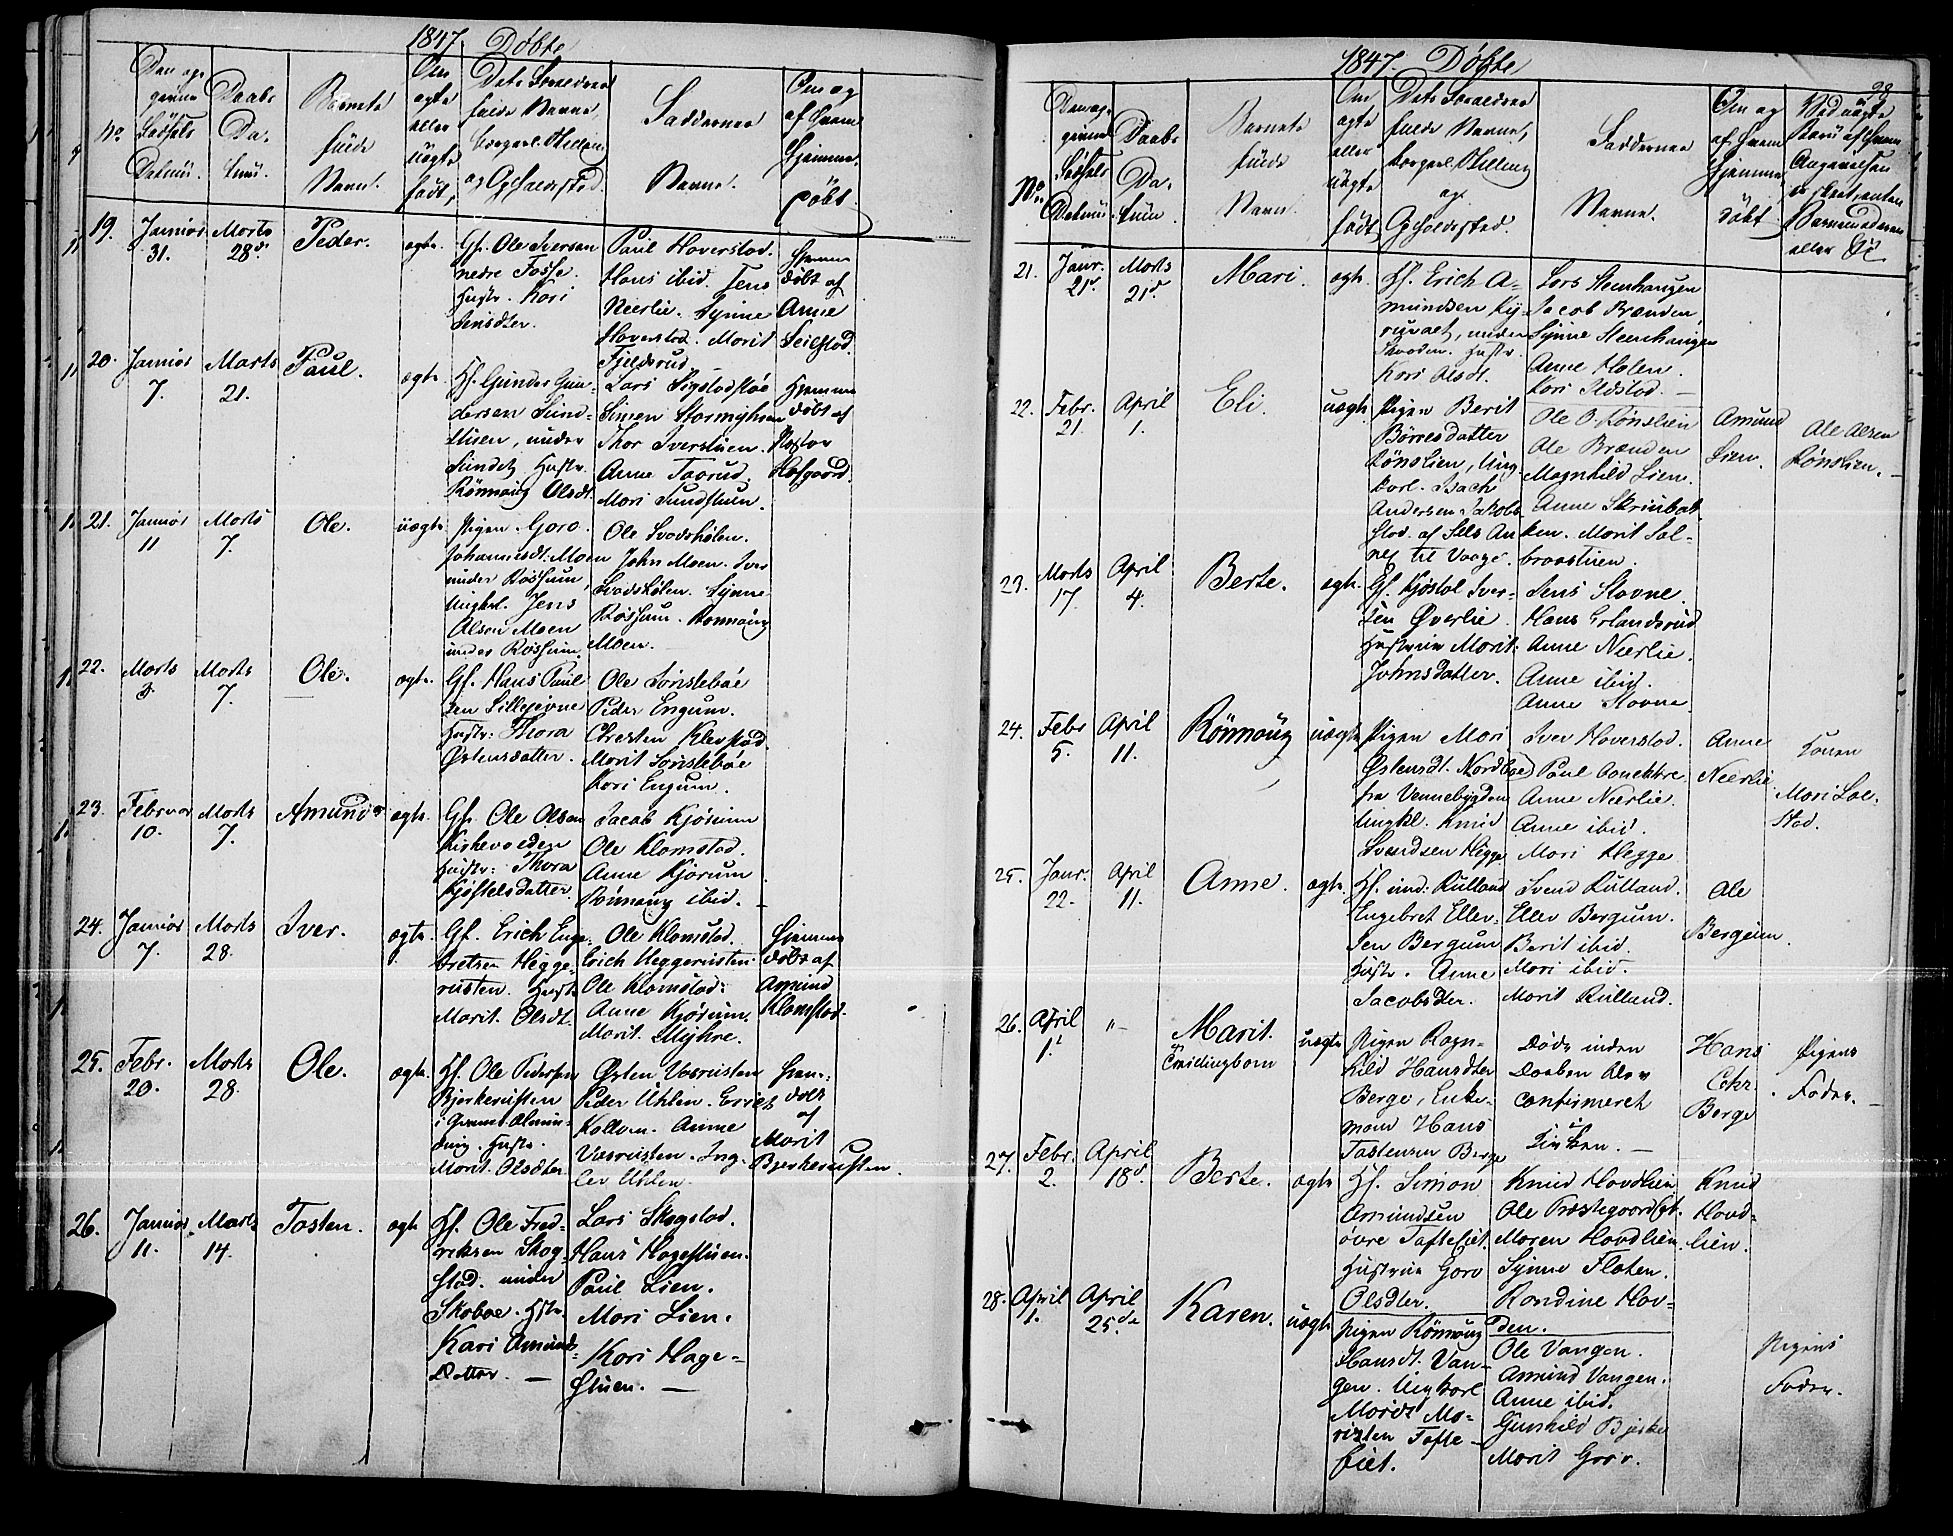 1847 Døbte
No
Den op-
given
Fødsels
Datum.
Daabs
Da-
tum.
Barnets
fulde
Navn.
Om
ægte
eller
uægte
født,
Dets Forældres
fulde Navne,
borgerl. Stilling
og Opholdssted.
Faddernes
Navne.
Om og
af hvem
hjemme-
døbt
19. Januar 31. Marts 28de Peder. ægte
Gf. Ole Iversen
nedre Fosse.
Hustr. Kari
Jensdter.
Paul Haverstad.
Hans ibid. Jens
Neerlie. Synne
Haverstad. Marit
Fjeldsrud
Hjemme
døbt af
Anne
Seilstad.
20. Januar 7. Marts 21. Paul. ægte
Hf. Gunder Gun-
dersen Sund-
stuen, under
Sundet. Hustr.
Rønnaug Olsdt.
Lars
Simen
Thor Iverstuen.
Anne Taarud.
Mari Sundstuen.
Hjemme
døbt af
Pastor
Hofgaard.
21. Januar 11 Marts 7. Ole. uægte
Pigen Goro
Johannesdt. Moen
under Røssum,
Ungkl. Jens
Olsen Moen
under Røssum.
Ole Svadskolen.
John Moen. Iver
Svadskolen. Synne
Røssum. Rønnaug
Moen.
22. Marts 3. Marts 7. Ole. ægte.
Gf. Hans Paul
sen Lillejevne
Hustr. Thora
Østensdatter.
Ole Sønsteböe
Peder Engum.
Christen Klevstad.
Marit Sønsteböe
Kari Engum.
23. Februar 10. Marts 7. Amund ægte.
Gf. Ole Olsen
Kirkevolden
Hustr: Thora
Kjøstelsdatter.
Jacob Kjørum
Ole Klomstad.
Anne Kjørum.
Rönnaug ibid.
24. Januar 7. Marts 28. Iver. ægte.
Gf. Erich Enge-
bretsen Hegge-
rusten. Hustr.
Marit Olsdt.
Ole Klomstad.
Erich Heggerusten.
Ole Klomstad:
Anne Kjørum.
Marit Myhre.
Hjemme
døbt af
Amund
Klomstad.
25. Febr. 20. Marts 28. Ole. ægte.
Hf. Ole Pedersen
Bjerkerusten
Hustr.
Marit Olsdter
Østen Vasrusten
Peder Uhlen. Erich
Kolloen. Anne
Vasrusten. Ing-
lev Uhlen.
Hjem-
døbt
af
Marit
Bjerkerusten.
26. Januar 11. Marts 14. Tosten. ægte
Hf. Ole Fred-
riksen Skog-
stad. under
Skaboe. Hstr.
Kari Amunds-
datter.
Lars Skogstad.
Hans Hagestuen.
Paul Lien.
Mari Lien.
Kari Hage-
stuen.
1847. Døbte
98
No
Den op-
givne
Fødsels
Datum
Daabs
Da-
tum.
Barnets
fulde
Navn.
Om
ægte
eller
uægte
født,
Dets Forældres
fulde Navne,
borgerl. Stilling
og
Opholdssted.
Faddernes
Navne.
Om og
af hvem
hjemme-
døbt
Ved uægte
Børn af hvem
Angivelsen
er skeet, enten
Barnemoderen
eller
21. Janr. 21de Marts 21de Mari. ægte.
Hf. Erich A-
mundsen Ny-
under
Hustr.
Kari Olsdt.
Lars Steenhaugen
Jacob Brænden
Synne Steenhaugen
Anne Holen.
Kari
22. Febr. 21. April 1. Eli. uægte
Pigen Berit
Børresdatter
Rønslien, Ung-
karl. Isach
Andersen Jakobs-
stad. af Sels An-
nex til Vaage.
Ole O. Rønslien
Ole Brænden
Magnhild Lien.
Anne Skriubak-
ken. Marit Sol-
braastuen.
Amund
Lien.
Ole Olsen
Rønslien.
23. Marts 17. April 4. Berte. ægte.
Gf. Kjøstol Iver-
sen Øverlie.
Hustrue Marit
Johnsdatter.
Jens Stovne.
Hans Erlandsrud
Anne Neerlie.
Anne ibid.
Anne Stovne
24. Febr 5. April 11. Rønnoug uægte
Pigen Mari
Østensdt. Nordboe
fra Vennebygden
Ungkl. Knud
Svendsen Hegge
Iver Haverstad.
Paul
Anne Neerlie.
Anne ibid.
Mari Hegge
Anne
Neerlie
Konen
Mari
25. Janr. 22. April 11. Anne. ægte.
Hf. und: Rulland
Engebret Ellev-
sen Bergum
Hustr. Anne
Jacobsdter.
Svend Rulland.
Ellev Bergum.
Berit ibid.
Mari ibid.
Marit Rulland.
Ole
Bergum.
26. April 1. Marit. uægte
Tvillingbarn
Pigen Ragn-
hild Hansdter
Berge, Enke-
mand Hans
Tostensen Berge
Døde inden
Daaben blev
confirmeret
i Kirken.
Hans
Chr.
Berge
Pigens
Fader.
27. Febr. 2. April 18de Berte. ægte
Hf. Simon
Amundsen
øvre Toftesiet.
Hustrue Goro
Olsdter.
Knud Hovdlien
Ole Præstegaardset.
Maren Hovdlien.
Synne Floten.
Rondine Hov-
den.
Knud
Hovd-
lien.
28. April 1. April 25de Karen. uægte
Pigen Rønnoug
Hansdt. Van-
gen. Ungkarl
Mo-
Tofte-
siet.
Ole Vangen.
Amund Vangen.
Anne ibid.
Gunhild Bjerke
Marit Grov.
Pigens
Fader.